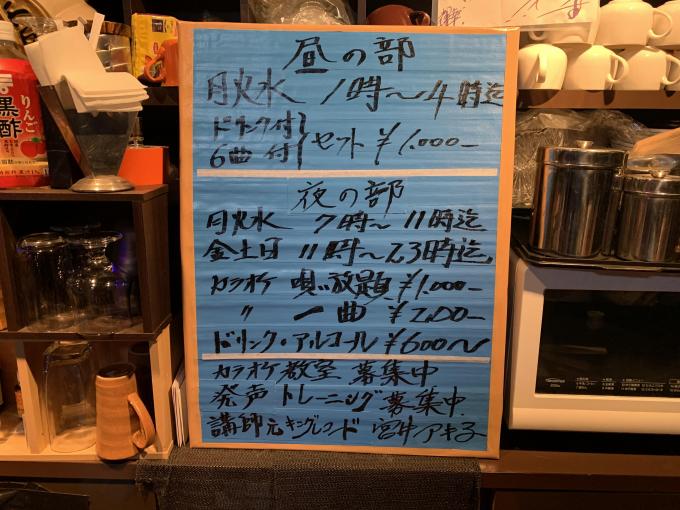 昼の部
月火水 1時〜4時迄
ドリンク付
6曲付 セット ¥1.000-
夜の部
月火水 7時〜11時迄
金土日 11時〜23時迄.
カラオケ 唄い放題 ¥1.000-
〃 一曲 ¥200-
ドリンク・アルコール ¥600〜
カラオケ教室 募集中
発声トレーニング募集中
講師元キングレコード 宮井アキ子
りんご
黒酢